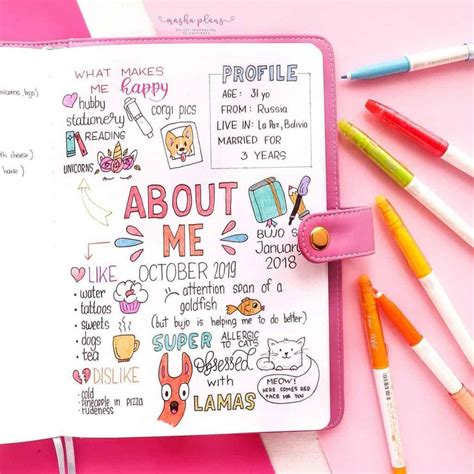 masha plans
BULLET JOURNALING
TO HAPPINESS
WHAT MAKES
ME happy
hubby
corgi pics
stationery
READING
UNICORNS
PROFILE
AGE: 31 yo
FROM: Russia
LIVE IN: La Paz, Bolivia
MARRIED FOR
3 YEARS
ABOUT
ME
BUJO S
January
2018
OCTOBER 2019
LIKE
water
tattoos
sweets
dogs
tea
attention span of a
goldfish
(but bujo is helping me to do better)
SUPER
ALLERGIC
TO CATS
obsessed
with
LAMAS
MEOW!
HERE COMES RED
FACE FOR YOU
DISLIKE
cold
pineapple in pizza
rudeness